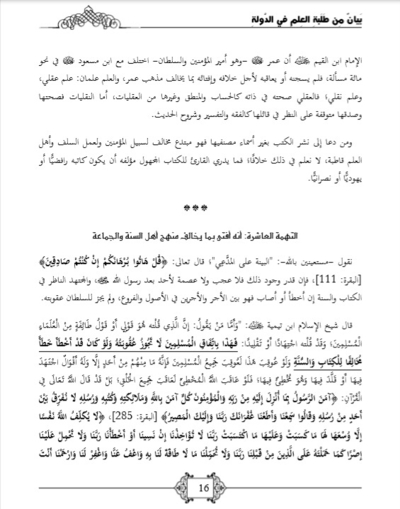 بيانٌ من طلبة العلم في الدولة
الإمام ابن القيم ﷺ أن عمر ﷺ -وهو أمير المؤمنين والسلطان- اختلف مع ابن مسعود ﷺ في نحو
مائة مسألة، فلم يسجنه أو يعاقبه لأجل خلافه وإفتائه بما يخالف مذهب عمر، والعلم علمان: علم عقلي،
وعلم نقلي؛ فالعقلي صحته في ذاته كالحساب والمنطق وغيرها من العقليات، أما النقليات فصحتها
وصدقها متوقفة على النظر في قائلها كالفقه والتفسير وشروح الحديث.
ومن دعا إلى نشر الكتب بغير أسماء مصنفيها فهو مبتدع مخالف لسبيل المؤمنين ولعمل السلف وأهل
العلم قاطبة، لا نعلم في ذلك خلافًا؛ فما يدري القارئ للكتاب المجهول مؤلفه أن يكون كاتبه رافضيًّا أو
يهوديًّا أو نصرانيًّا.
***
التهمة العاشرة: أنه أفتى بما يخالف منهج أهل السنة والجماعة
نقول -مستعينين بالله-: "البينة على المدَّعي"؛ قال تعالى: ﴿قُلْ هَاتُوا بُرْهَانَكُمْ إِنْ كُنْتُمْ صَادِقِينَ﴾
[البقرة: 111]، فإن قدر وجود ذلك فلا عجب ولا عصمة لأحد بعد رسول الله ﷺ، والمجتهد الناظر في
الكتاب والسنة إن أخطأ أو أصاب فهو بين الأجر والأجرين في الأصول والفروع، ولم يجز للسلطان عقوبته.
قال شيخ الإسلام ابن تيمية ﷺ: "وَأَمَّا مَنْ يَقُولُ: إنَّ الَّذِي قُلْته هُوَ قَوْلِي أَوْ قَوْلُ طَائِفَةٍ مِنْ الْعُلَمَاءِ
الْمُسْلِمِينَ؛ وَقَدْ قُلْته اجْتِهَادًا أَوْ تَقْلِيدًا: فَهَذَا بِاتِّفَاقِ الْمُسْلِمِينَ لَا تَجُوزُ عُقُوبَتُهُ وَلَوْ كَانَ قَدْ أَخْطَأَ خَطَأً
مُخَالِفًا لِلْكِتَابِ وَالسُّنَّةِ وَلَوْ عُوقِبَ هَذَا لَعُوقِبَ جَمِيعُ الْمُسْلِمِينَ فَإِنَّهُ مَا مِنْهُمْ مِنْ أَحَدٍ إلَّا وَلَهُ أَقْوَالٌ اجْتَهَدَ
فِيهَا أَوْ قَلَّدَ فِيهَا وَهُوَ مُخْطِئٌ فِيهَا؛ فَلَوْ عَاقَبَ اللَّهُ الْمُخْطِئَ لَعَاقَبَ جَمِيعَ الْخَلْقِ، بَلْ قَدْ قَالَ اللَّهُ تَعَالَى فِي
الْقُرْآنِ: ﴿آمَنَ الرَّسُولُ بِمَا أُنْزِلَ إلَيْهِ مِنْ رَبِّهِ وَالْمُؤْمِنُونَ كُلٌّ آمَنَ بِاللَّهِ وَمَلَائِكَتِهِ وَكُتُبِهِ وَرُسُلِهِ لَا نُفَرِّقُ بَيْنَ
أَحَدٍ مِنْ رُسُلِهِ وَقَالُوا سَمِعْنَا وَأَطَعْنَا غُفْرَانَكَ رَبَّنَا وَإِلَيْكَ الْمَصِيرُ﴾ [البقرة: 285]، ﴿لَا يُكَلِّفُ اللَّهُ نَفْسًا
إلَّا وُسْعَهَا لَهَا مَا كَسَبَتْ وَعَلَيْهَا مَا اكْتَسَبَتْ رَبَّنَا لَا تُؤَاخِذْنَا إنْ نَسِينَا أَوْ أَخْطَأْنَا رَبَّنَا وَلَا تَحْمِلْ عَلَيْنَا
إصْرًا كَمَا حَمَلْتَهُ عَلَى الَّذِينَ مِنْ قَبْلِنَا رَبَّنَا وَلَا تُحَمِّلْنَا مَا لَا طَاقَةَ لَنَا بِهِ وَاعْفُ عَنَّا وَاغْفِرْ لَنَا وَارْحَمْنَا أَنْتَ
16